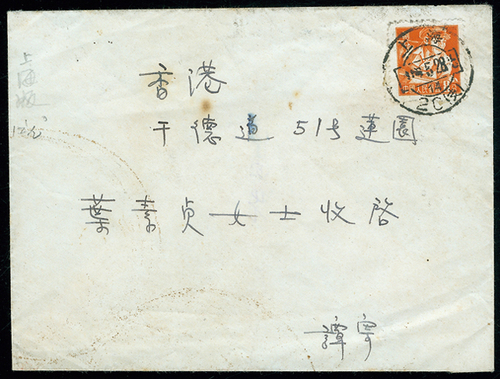 香港
干德道 51号 蓮園
葉素貞女士收啓
譚寄
上海
28
20